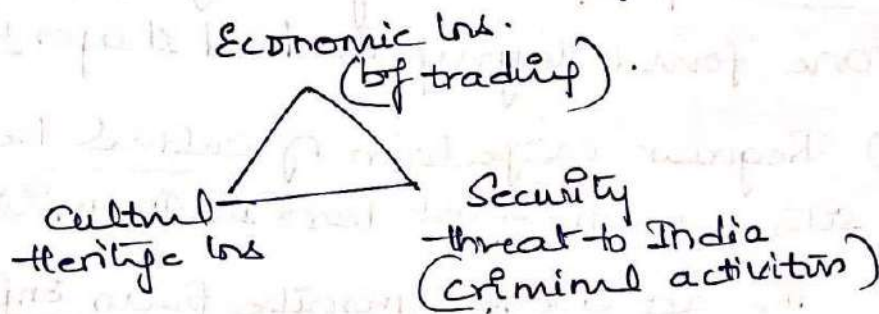 Economic loss.
(of trading).
Cultural
Heritage loss
Security
threat to India
(criminal activities)